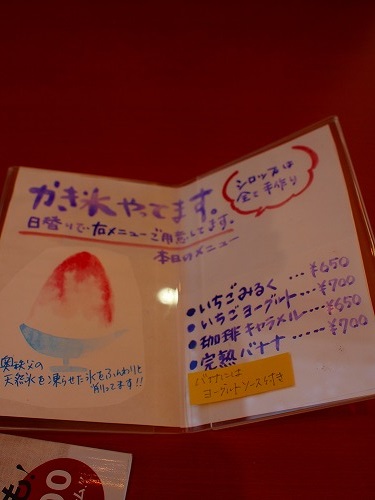 かき氷やってます。
日替りで右メニューご用意してます。
本日のメニュー
シロップは
全て手作り
●いちごみるく…¥650
●いちごヨーグルト…¥700
●珈琲キャラメル…¥650
●完熟バナナ……¥700
バナナには
ヨーグルトソース付き
天然氷を凍らせた氷をふんわりと
削ってます!!
も!
00